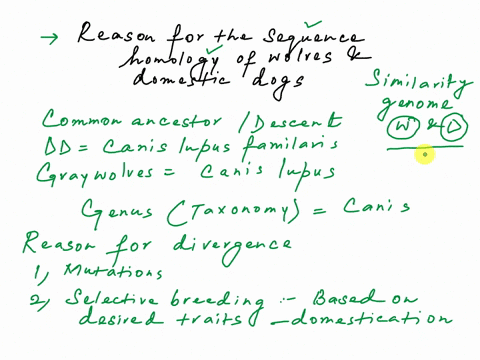 → Reason for the sequence
homology of wolves &
domestic dogs
Similarity
genome
W & D
Common ancestor / Descent
DD = Canis lupus familaris
Gray wolves = Canis lupus
Genus (Taxonomy) = Canis
Reason for divergence
1, Mutations
2, Selective breeding :- Based on
desired traits - domestication